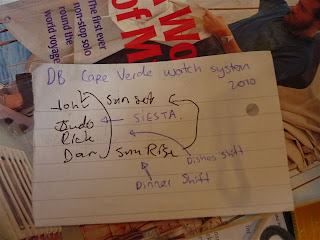 The first ever
non-stop solo
round the
world voyage
of M
DB Cape Verde watch system
2010
John Sunset
Budo SIESTA.
Rick
Dan Sun Rise
Dishes Shift
Dinner Shift